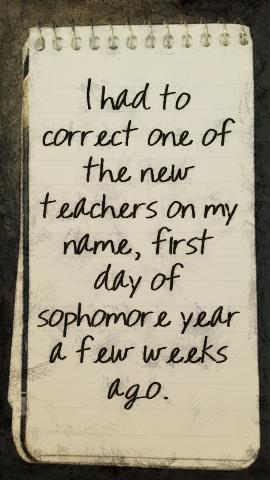 I had to
correct one of
the new
teachers on my
name, first
day of
sophomore year
a few weeks
ago.